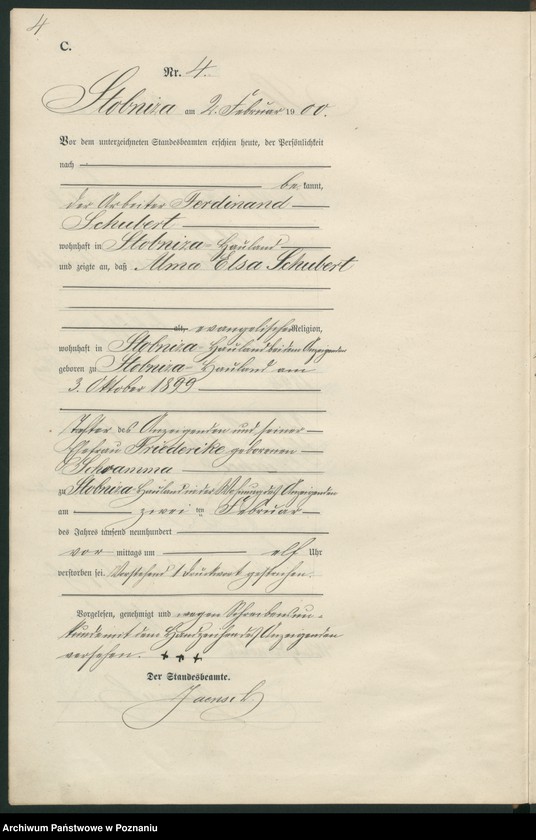 4
C.
Nr. 4.
Stobnica am 2. Februar 1900.
Vor dem unterzeichneten Standesbeamten erschien heute, der Persönlichkeit
nach
bekannt,
der Arbeiter Ferdinand
Schubert
wohnhaft in Stobnica-Hauland
und zeigte an, daß Alma Elsa Schubert
alt, evangelischer Religion,
wohnhaft in Stobnica-Hauland bei dem Anzeigenden
geboren zu Stobnica-Hauland am
3. Oktober 1899
Tochter des Anzeigenden und seiner
Ehefrau Friederike geborenen
Schramma
zu Stobnica Hauland in der Wohnung des Anzeigenden
am zwei ten Februar
des Jahres tausend neunhundert
vor mittags um elf Uhr
verstorben sei. Vorstehend 1 Druckwort gestrichen.
Vorgelesen, genehmigt und wegen Schreibensun-
kunde mit dem Handzeichen des Anzeigenden
versehen. +++
Der Standesbeamte.
Jaensch
Archiwum Państwowe w Poznaniu